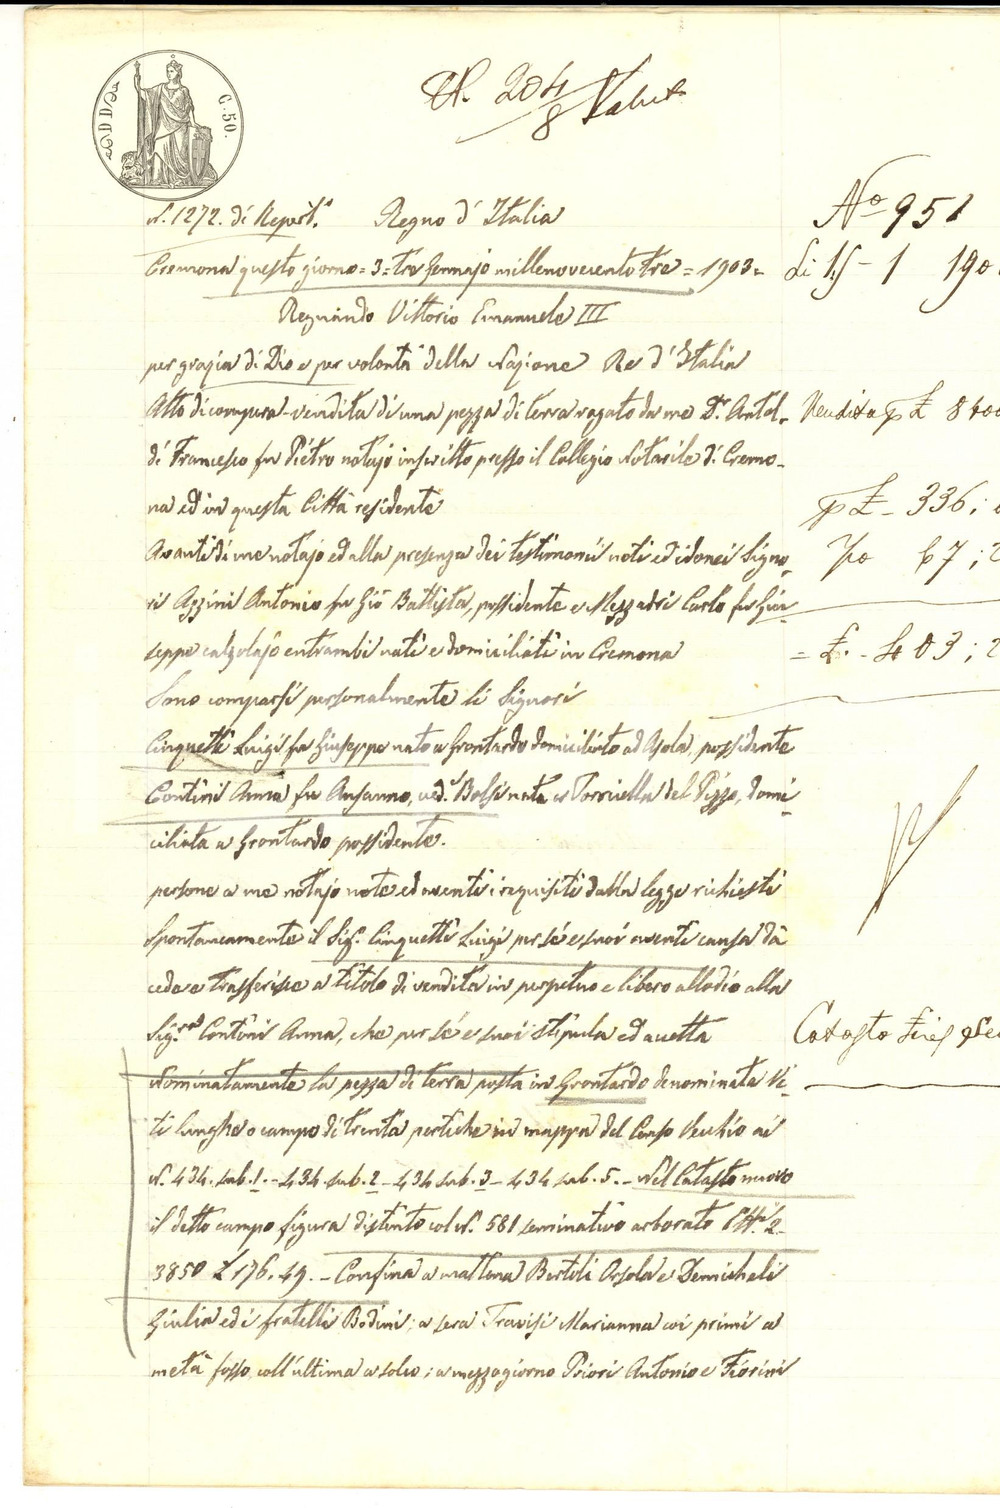 N. 204/8
C. 50.
N. 1272. di Repert.o Regno d'Italia
N.o 951
Cremona questo giorno = 3 = tre Gennajo millenovecento tre = 1903 =
Li 15 - 1 190
Regnando Vittorio Emanuele III
per grazia di Dio e per volontà della Nazione Re d'Italia
Atto di compra-vendita di una pezza di terra rogato da me Dr. Antol-
Vendita p £ 8400
di Francesco fu Pietro notajo inscritto presso il Collegio Notarile di Cremo-
na ed in questa Città residente
p £ - 336;
Avanti di me notajo ed alla presenza dei testimonii noti ed idonei Signo-
67; 2
ri Azzini Antonio fu Gio Battista, possidente e Mezzadri Carlo fu Giu-
seppe calzolajo entrambi nati e domiciliati in Cremona
= £. - 403; 2
Sono comparsi personalmente li Signori
Cinquetti Luigi fu Giuseppe nato a Grontardo domiciliato ad Asola, possidente
Contini Anna fu Ansanno, ved.a Bolsi nata a Torricella del Pizzo, domi-
ciliata a Grontardo possidente.
persone a me notajo note ed aventi i requisiti dalla legge richiesti
Spontaneamente il Sig.r Cinquetti Luigi per sé e suoi aventi causa dà
cede e trasferisce a titolo di vendita in perpetuo e libero allodio alla
Sig.ra Contini Anna, che per sé e suoi stipula ed accetta
Catasto
Nominatamente la pezza di terra posta in Grontardo denominata Vi-
ti lunghe o campo di trenta pertiche in mappa del Censo Vecchio ai
N. 434. sub. 1. - 434. sub. 2 - 434 sub. 3 - 434 sub. 5. - Nel Catasto nuovo
il detto campo figura distinto col N. 581 seminativo arborato Ett.i 2.
3850 £ 176. 49. - Confina a mattina Bertoli Orsola e Demicheli
Giulia ed i fratelli Bodini; a sera Travisi Marianna coi primi a
metà fosso, coll'ultima a solco; a mezzogiorno Priori Antonio e Fiorini